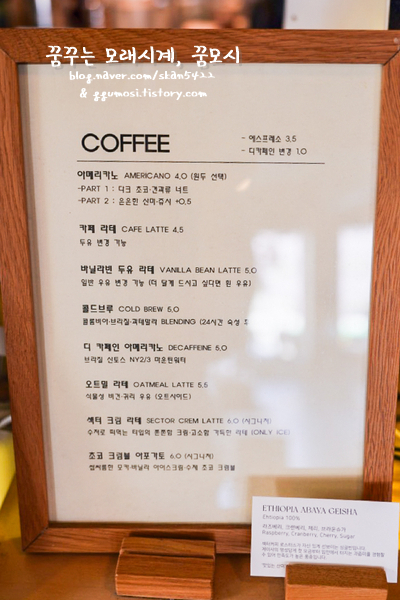 꿈꾸는 모래시계, 꿈모시
blog.naver.com/skan5422
& ggumosi.tistory.com
COFFEE
- 에스프레소 3,5
- 디카페인 변경 1,0
아메리카노 AMERICANO 4,0 (원두 선택)
-PART 1 : 다크 초코·견과류 너트
-PART 2 : 은은한 산미·쥬시 +0,5
카페 라테 CAFE LATTE 4,5
두유 변경 가능
바닐라빈 두유 라테 VANILLA BEAN LATTE 5,0
일반 우유 변경 가능 (더 달게 드시고 싶다면 흰 우유)
콜드브루 COLD BREW 5,0
콜롬비아·브라질·과테말라 BLENDING (24시간 숙성
디 카페인 아메리카노 DECAFFEINE 5,0
브라질 산토스 NY2/3 마운틴워터
오트밀 라테 OATMEAL LATTE 5,5
식물성 비건·귀리 우유 (오트사이드)
섹터 크림 라테 SECTOR CREM LATTE 6,0 (시그니처)
수저로 떠먹는 타입의 쫀쫀함 크림·고소함 가득한 라테 (ONLY ICE)
초코 크럼블 아포가토 6,0 (시그니처)
쌉싸름한 모카·바닐라 아이스크림·수제 초코 크럼블
ETHIOPIA ABAYA GEISHA
Ethiopia 100%
라즈베리, 크랜베리, 체리, 브라운슈가
Raspberry, Cranberry, Cherry, Sugar